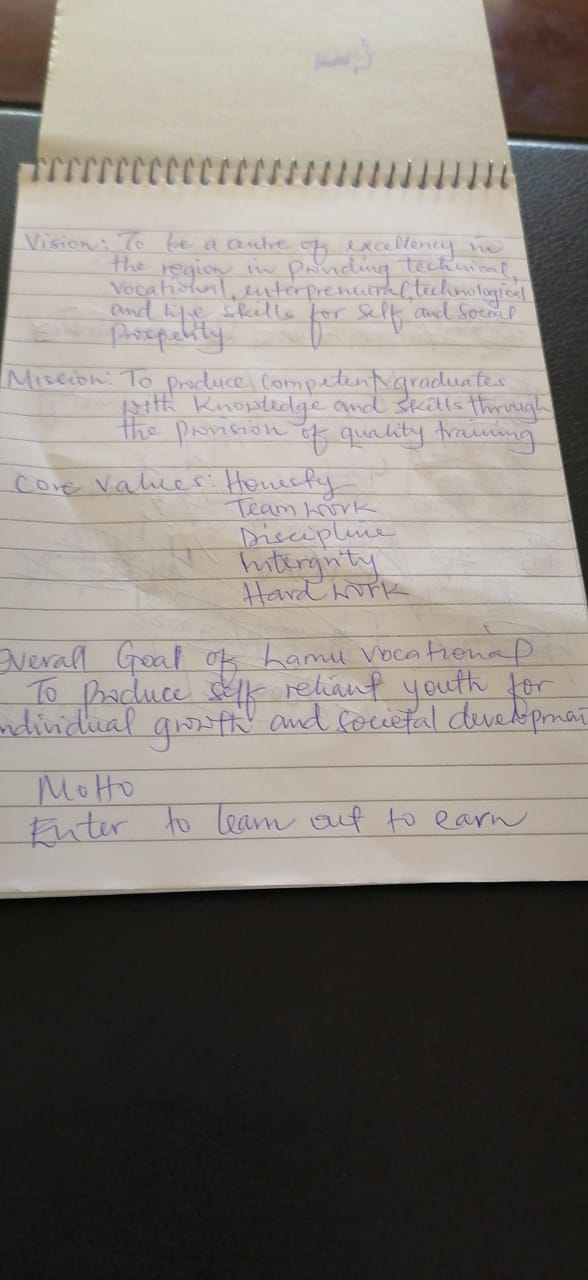 Vision: To be a centre of excellency in
the region in providing technical,
vocational, enterpreneural, technological
and life skills for self and social
prosperity
Mission: To produce competent graduates
with knowledge and skills through
the provision of quality training
Core Values: Honesty
Team work
Discipline
Intergrity
Hard work
Overall Goal of Lamu Vocational
To produce self reliant youth for
individual growth and societal development
Motto
Enter to learn out to earn